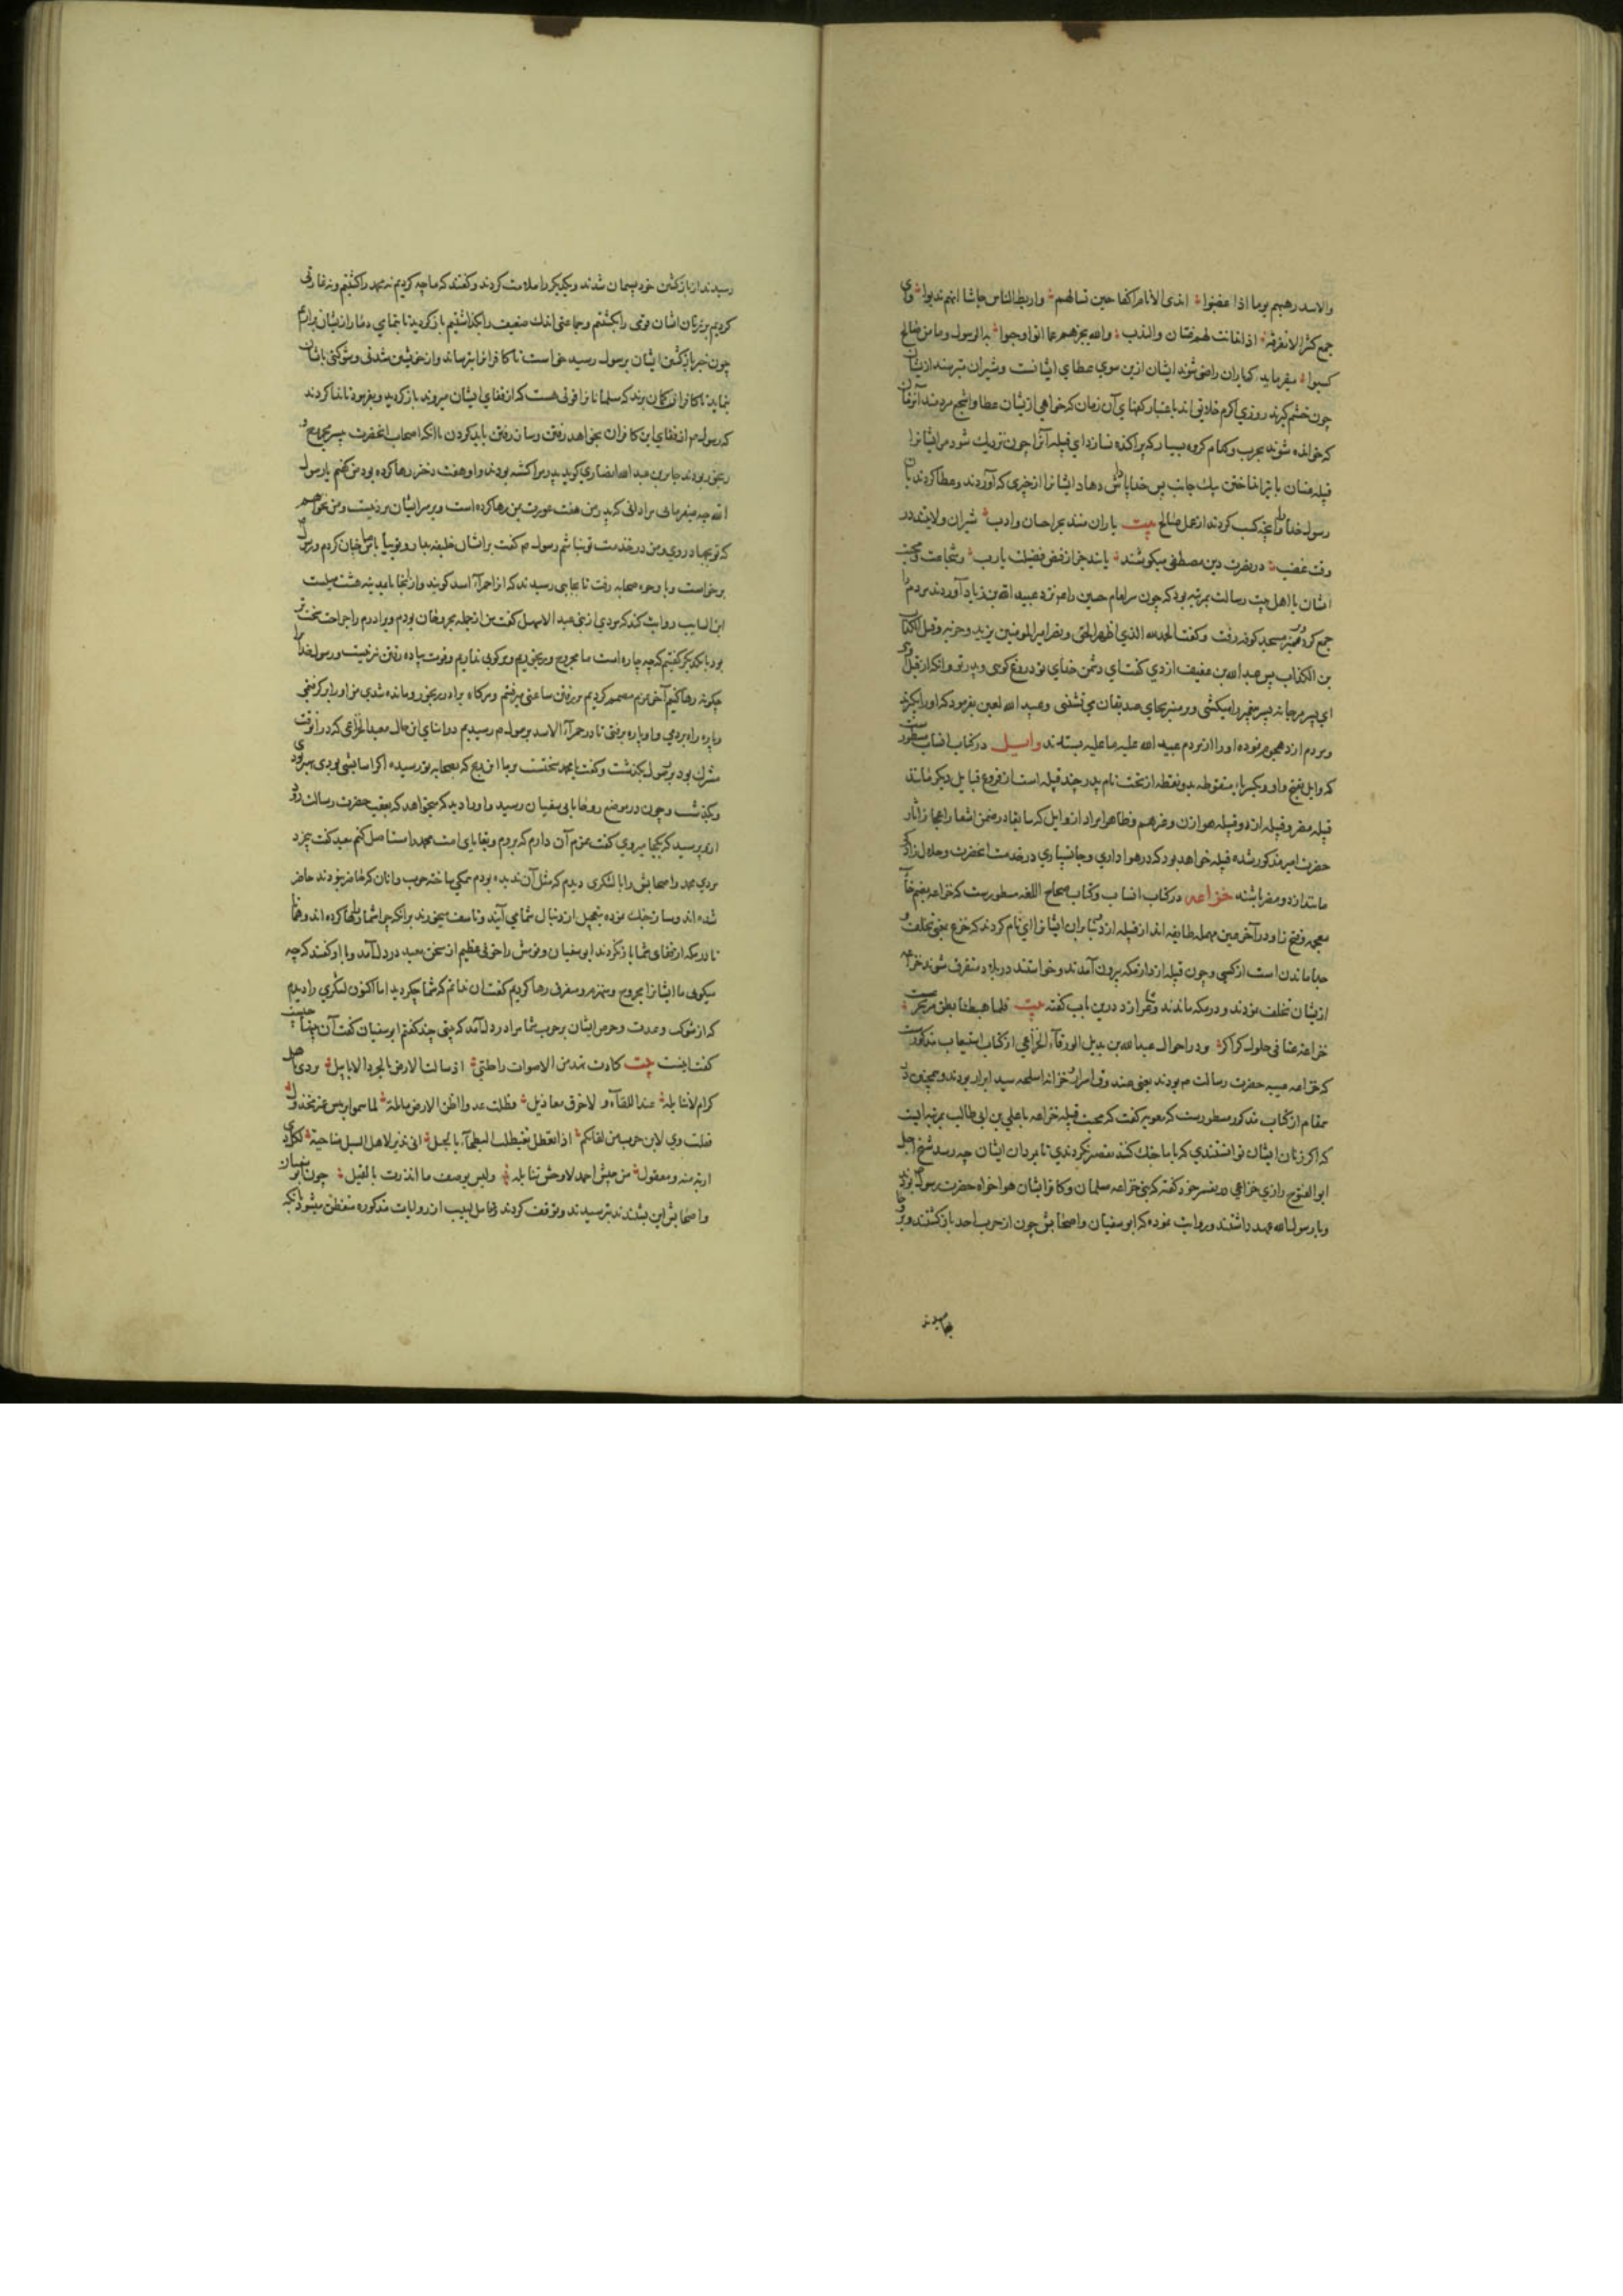 والاسد رهبهم یوما اذا غضبوا اندی الانام اکفا حین تسالهم واربط الناس جاشا انهم ندبوا وای
جمع کثیر لا تفرقه اذا تدانت لهم غسان والندب والله یجزیهم عما اتوا وحبوا به الرسول وما من صالح
کسبوا میفرماید که یاران راضی شوند ایشان ازین سوی عطای ایشانست وشیران بترسند ازیشان
چون خشم گیرند روزی اکرم خلایق اند باعتبار کفهای آن زمان که خواهی ازیشان عطا واشجع مردمند آنزمان
که خوانده شوند بحرب وکدام گروه بسیار که پراکنده نسازد ای قبیله آنرا چون نزدیک شود مر ایشانرا
قبیله غسان با تیر انداختن یک جانب پس خدا پاداش دهاد ایشانرا از چیزی که آوردند وعطا کردند بآن
رسول خدا را وآنچه کسب کردند از عمل صالح بیت یاران منند بحر احسان وادب شیران ولایتند در
وقت غضب در نصرت دین مصطفی میکوشند یابند جزا ز فیض فضلت یا رب وشجاعت ومحبت
ایشان با اهل بیت رسالت بمرتبه بود که چون سر امام حسین را نزد عبید الله بن زیاد آوردند مردم را
جمع کرد وبر منبر مسجد کوفه رفت وگفت الحمد لله الذی اظهر الحق ونصر امیر المومنین یزید وحزبه وقتل الکذاب
بن الکذاب پس عبد الله بن عفیف ازدی گفت ای دشمن خدای تو دروغ گوئی وپدر تو وانکه از قبل وی
ای پسر مرجانه پسر پیغمبر را میکشی وبر منبر بجای صدیقان می نشینی وعبید الله لعین بفرمود که او را بگیرند
ومردم ازد هجوم نموده او را از مردم عبید الله علیه ما علیه بستدند وایل در کتاب انساب مسطورست
که وایل بفتح واو وبکسر یاء منقوطه بدو نقطه از تحت نام پدر چند قبیله است از فروع قبایل دیگر مانند
قبیله مضر وقبیله ازد وقبیله هوازن وغیرهم وظاهرا مراد از وایل که سابقا در ضمن اشعار اعجاز آثار
حضرت امیر مذکور شده قبیله خواهد بود که در هواداری وجانسپاری در خدمت انحضرت
مانند ازد ومضر باشند خزاعه در کتاب انساب وکتاب صحاح اللغه مسطورست که خزاعه بضم خاء
معجمه وفتح زا ودر آخر عین مهمله طایفه اند از قبیله ازد وبنابران ایشانرا این نام کردند که خزع بمعنی تخلف و
جدا ماندن است از کسی وچون قبیله ازد از مکه بیرون آمدند وخواستند در بلاد متفرق شوند خزاعه
ازیشان تخلف نمودند ودر مکه ماندند وشاعر ازد درین باب گفته بیت فلما هبطنا بطن مر تخزعت
خزاعة عنا فی حلول کراکر ودر احوال عبد الله بن بدیل الورقاء الخزاعی از کتاب استیعاب مذکورست
که خزاعه عیبه حضرت رسالت م بودند یعنی صندوق اسرار وخزانه اسلحه سید ابرار بودند وهمچنین در
مقام از کتاب مذکور مسطورست که معویه گفت که محبت قبیله خزاعه با علی بن ابی طالب بمرتبه ایست
که اگر زنان ایشان توانستندی که با ما جنگ کنند تقصیر نکردندی تا بمردان ایشان چه رسد شیخ اجل
ابو الفتوح رازی خزاعی در تفسیر خود گفته که بنی خزاعه مسلمان وکافر ایشان هواخواه حضرت رسول بودند
وبا رسول الله عهد داشتند وروایت نموده که ابو سفیان واصحابش چون از حرب احد بازگشتند وبر
رسیدند از بازگشتن خود پشیمان شدند ویکدیگر را ملامت کردند وگفتند که ما چه کردیم نه محمد را کشتیم ونه غارتی
کردیم بر زنان ایشان قومی را بکشتیم وجماعتی اندک ضعیف را بگذاشتیم بازگردید تا بتمامی دمار ازیشان برآریم
چون خبر بازگشتن ایشان برسول رسید خواست تا کافرانرا بترساند واز خویشتن شدتی وشوکتی بایشان
بنماید تا کافران گمان برند که مسلمانانرا قوتی هست که از قفای ایشان میروند بازگردید وبفرمود تا ندا کردند
که رسول م از قفای این کافران بخواهد رفتن وساز رفتن باید کردن با انکه اصحاب انحضرت بیشتر مجروح و
رنجور بودند جابر بن عبد الله انصاری گوید پدرم را کشته بودند واو هفت دختر رها کرده بود من گفتم یا رسول
الله چه میفرمائی مرا دانی که پدر من هفت عورت بمن رها کرده است وبر سر ایشان مرد نیست ومن نخواهم
که تو بجهاد روی ومن در خدمت تو نباشم رسول م گفت بر ایشان خلیفه بدار وتو بیا با ما جابر چنان کردم ورسول
برخاست وبا وجوه صحابه رفت تا بجایی رسیدند که آنرا حمراء اسد گویند واز آنجا تا مدینه هشت میلست
ابن السایب روایت کند که مردی از بنی عبد الاشهل گفت من از جمله مجروحان بودم وبرادرم را جراحت سخت تر
بود با یکدیگر گفتیم که چه چاره است ما مجروح ورنجوریم ومرکوبی نداریم وقوت پیاده رفتن نیست ورسول خدا را
چگونه رها کنیم آخر عزم مصمم کردیم بر رفتن ساعتی میرفتیم وهرگاه برادر رنجور ومانده شدی من او را برگرفتمی
وپاره راه بردمی واو پاره برفتی تا در حمراء الاسد برسول م رسیدیم در اثنای این حال معبد الخزاعی که در آنوقت
مشرک بود برسول بگذشت وگفت یا محمد سختست بر ما این رنج که بصحابه تو رسیده
وبگذشت وچون در موضع روحا بابی سفیان رسید واو را دید که میخواهد که بعقب حضرت رسالت رود
ازو پرسید که بکجا میروی گفت عزم آن دارم که بروم وبقایای امت محمد را مستاصل کنم معبد گفت
بردی محمد واصحابش را با لشکری دیدم که مثل آن ندیده بودم همگی ساخته حرب وانان که حاضر نبودند حاضر
شده اند وساز جنگ نموده بتعجیل از دنبال شما می آیند وتاسف میخورند برانکه چرا شما را رها کرده اند وهمانا
تا در مکه از قفای شما بازنگردند ابو سفیان وقومش را خوفی عظیم از سخن معبد در دل آمد وبا او گفتند که چه
میگوئی ما ایشانرا مجروح ومنهزم ومتفرق رها کردیم گفت ان ندانم که شما چه کردید اما اکنون لشکری را دیدم
که از شوکت وعدت وحرص ایشان بر حرب شما مرا در دل آمد که بیتی چند گفتم ابو سفیان گفت آن بیتها چیست
گفت اینست بیت کادت تهد من الاصوات راحلتی اذ سالت الارض بالجرد الابابیل تردی باسد
کرام لا تنابلة عند اللقاء ولا خرق معاذیل فظلت عدوا اظن الارض مائلة لما سموا برئیس غیر مخذول
فقلت ویل لابن حرب من لقائکم اذا تغطمطت البطحاء بالجیل انی نذیر لاهل السبل ضاحیة لکل ذی
اربة منه ومعقول من جیش احمد لا وحش تنابلة ولیس یوصف ما انذرت بالقیل چون ابو سفیان
واصحابش این بشنیدند بترسیدند وتوقف کردند وتامل لبیب از روایات مذکوره متفطن میشود بانکه